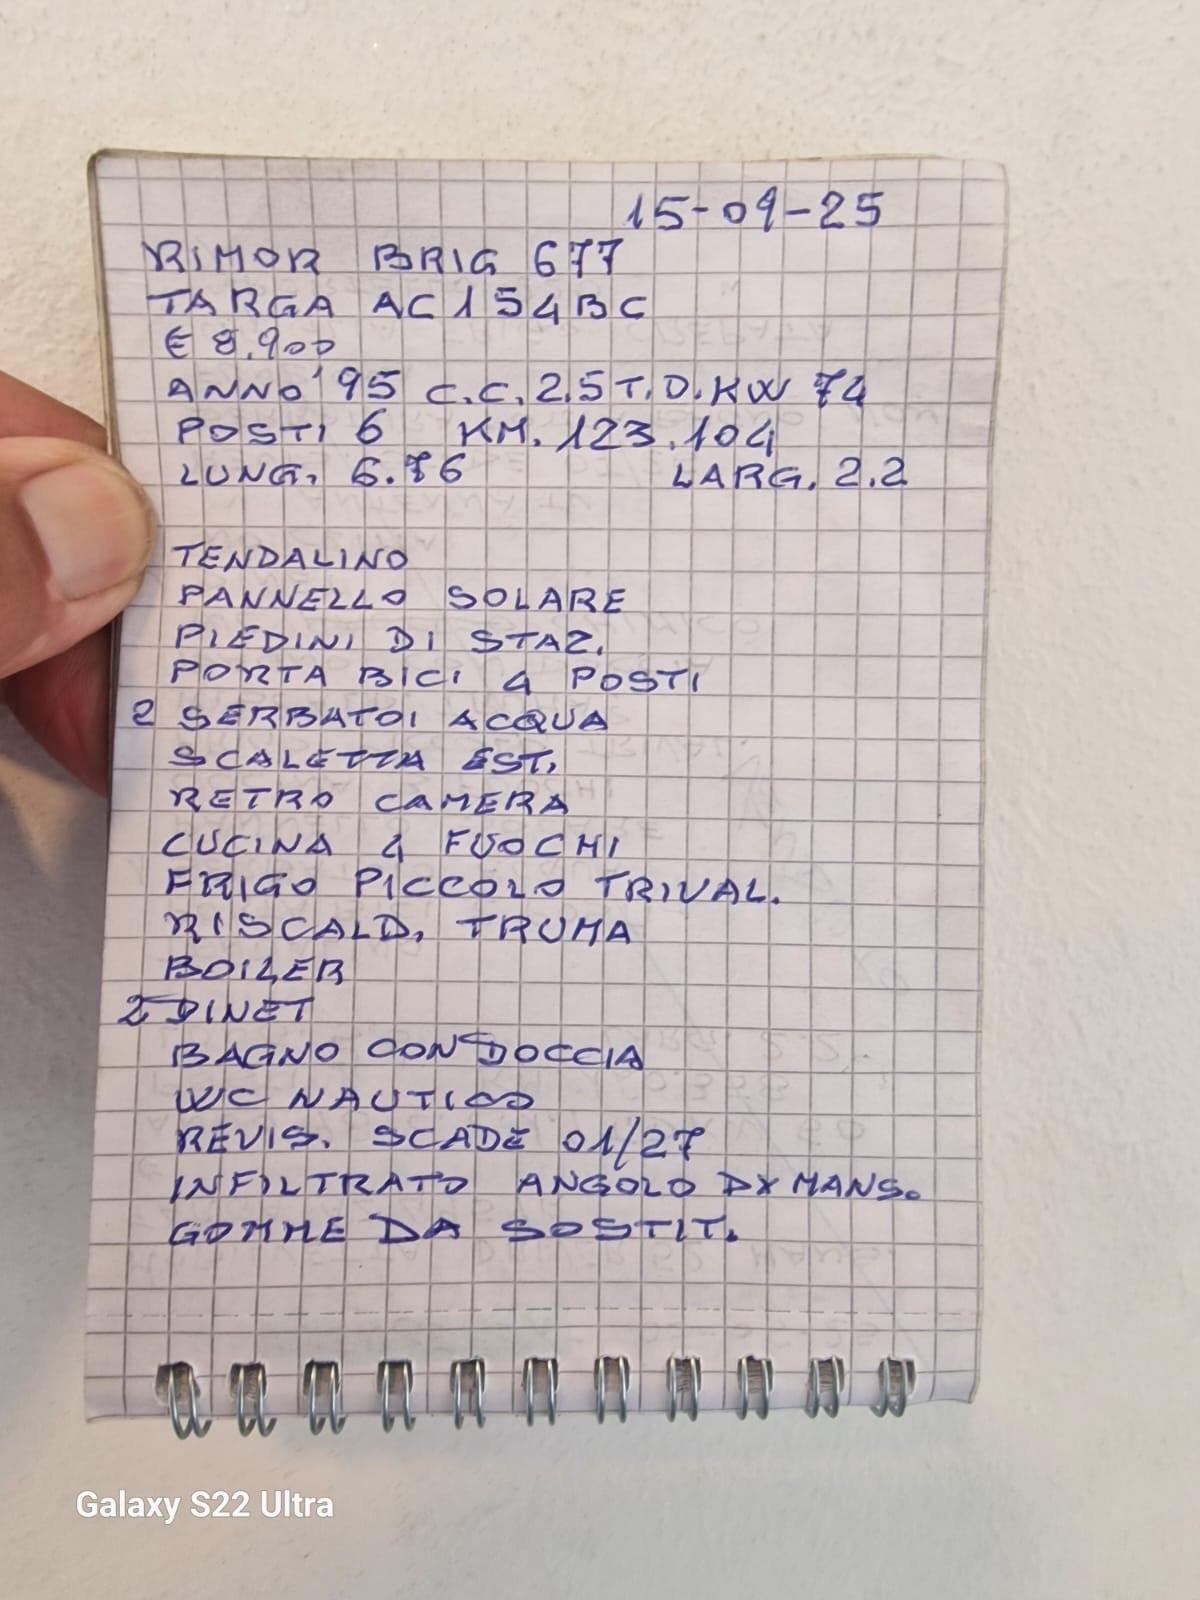 15-09-25
RIMOR BRIG 677
TARGA AC154BC
€ 8.900
ANNO '95 C.C. 2.5 T.D. KW 74
POSTI 6 KM. 123.104
LUNG. 6.76 LARG. 2.2
TENDALINO
PANNELLO SOLARE
PIEDINI DI STAZ.
PORTA BICI 4 POSTI
2 SERBATOI ACQUA
SCALETTA EST.
RETRO CAMERA
CUCINA 4 FUOCHI
FRIGO PICCOLO TRIVAL.
RISCALD. TRUMA
BOILER
2 DINET
BAGNO CON DOCCIA
WC NAUTICO
REVIS. SCADE 01/27
INFILTRATO ANGOLO DX MANS.
GOMME DA SOSTIT.
Galaxy S22 Ultra